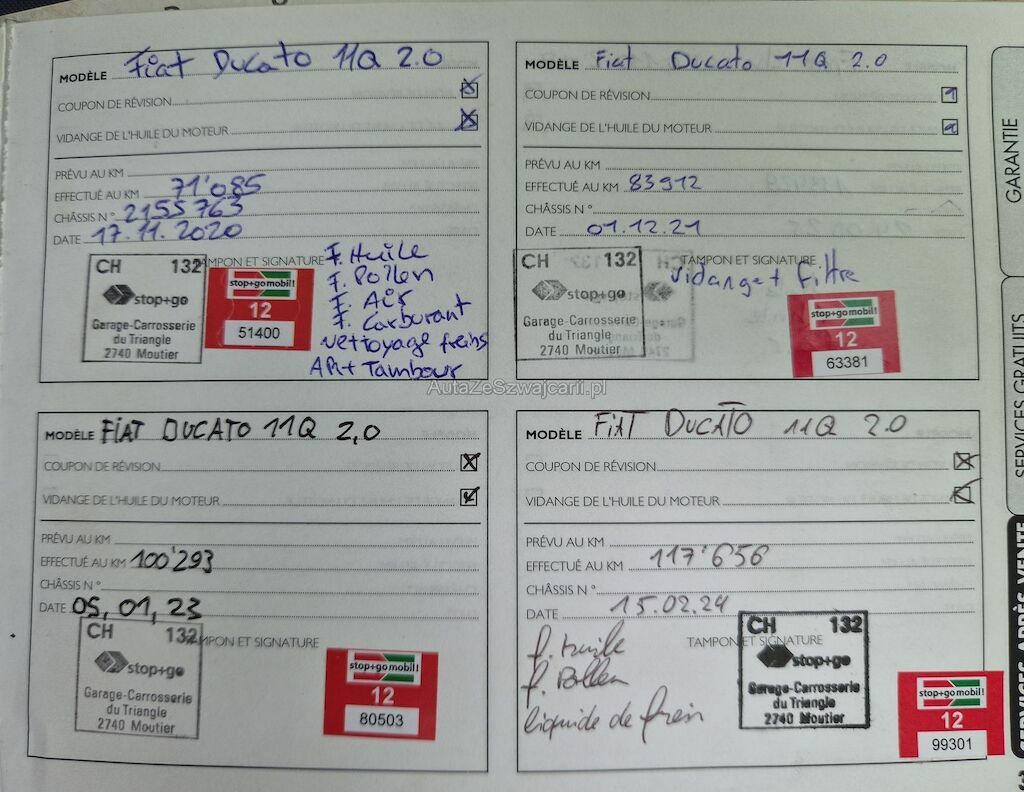 MODÈLE Fiat Ducato 11Q 2.0
COUPON DE RÉVISION
VIDANGE DE L'HUILE DU MOTEUR
PRÉVU AU KM
EFFECTUÉ AU KM 71'085
CHÂSSIS N° 2155763
DATE 17.11.2020
TAMPON ET SIGNATURE
CH 132
stop+go
Garage-Carrosserie
du Triangle
2740 Moutier
stop+go mobil!
12
51400
F. Huile
F. Pollen
F. Air
F. Carburant
Nettoyage freins
AR+ Tambour
MODÈLE Fiat Ducato 11Q 2.0
COUPON DE RÉVISION
VIDANGE DE L'HUILE DU MOTEUR
PRÉVU AU KM
EFFECTUÉ AU KM 83912
CHÂSSIS N°
DATE 01.12.21
TAMPON ET SIGNATURE
Vidange + Filtre
CH 132
stop+go
Garage-Carrosserie
du Triangle
2740 Moutier
stop+go mobil!
12
63381
AutaZeSzwajcarii.pl
MODÈLE FIAT DUCATO 11Q 2,0
COUPON DE RÉVISION
VIDANGE DE L'HUILE DU MOTEUR
PRÉVU AU KM
EFFECTUÉ AU KM 100'293
CHÂSSIS N°
DATE 05,01,23
TAMPON ET SIGNATURE
CH 132
stop+go
Garage-Carrosserie
du Triangle
2740 Moutier
stop+go mobil!
12
80503
MODÈLE FIAT DUCATO 11Q 2.0
COUPON DE RÉVISION
VIDANGE DE L'HUILE DU MOTEUR
PRÉVU AU KM
EFFECTUÉ AU KM 117'656
CHÂSSIS N°
DATE 15.02.24
TAMPON ET SIGNATURE
f. Huile
f. Pollen
liquide de frein
CH 132
stop+go
Garage-Carrosserie
du Triangle
2740 Moutier
stop+go mobil!
12
99301
GARANTIE
SERVICES GRATUITS
SERVICES APRÈS VENTE